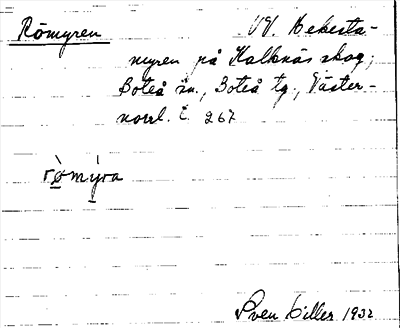 Römyren VV. Hekesta-
myren på Kalknäs skog,
Boteå sn., Boteå tg., Väster-
norrl. l. 267
ròmýra
Sven Ciller 1932